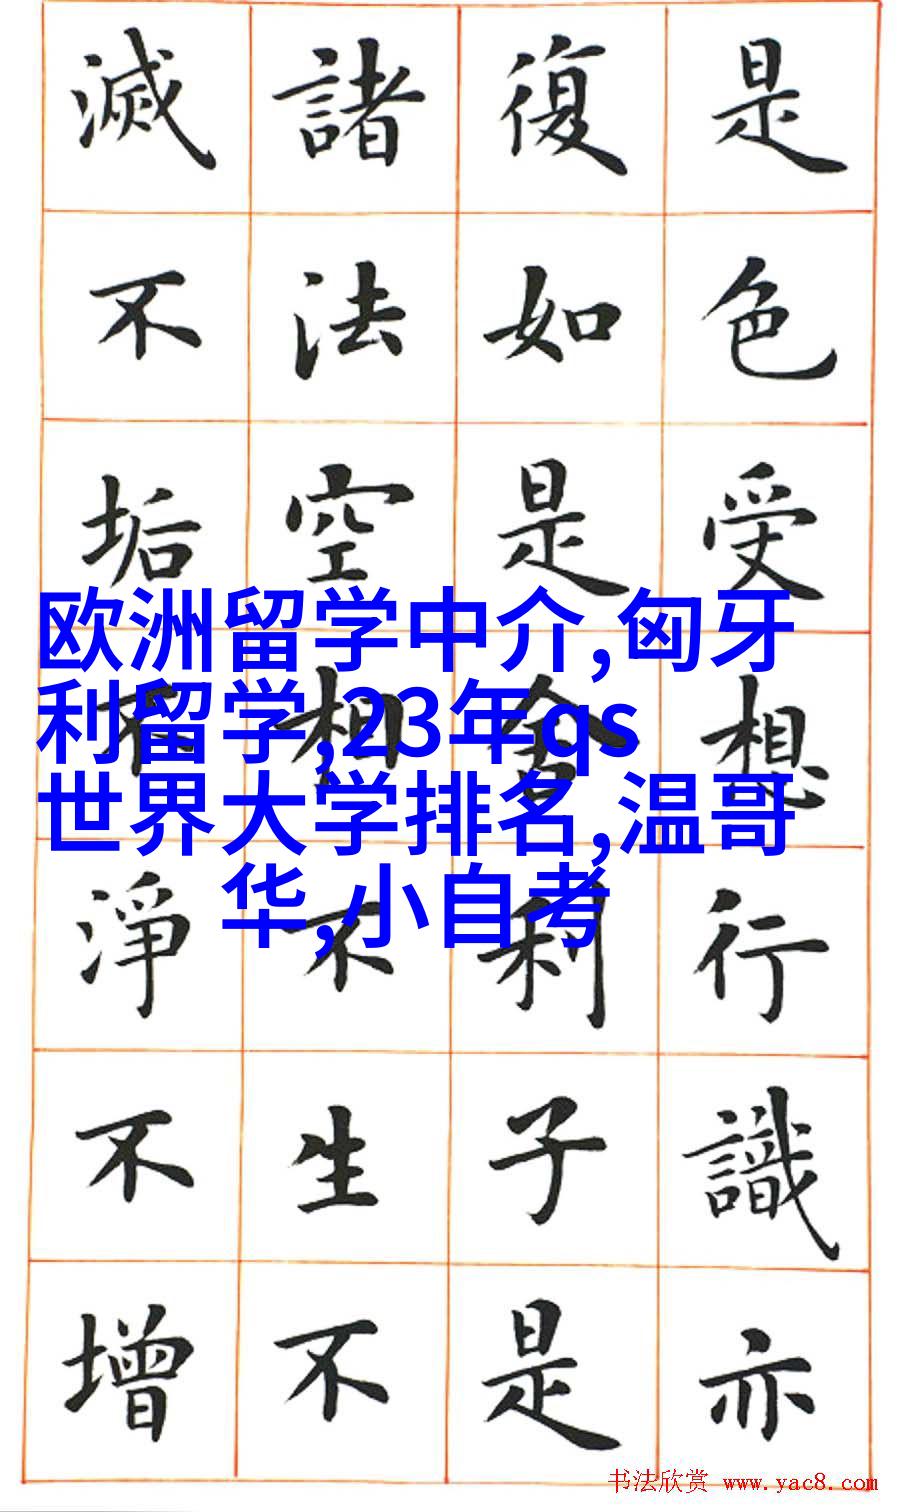 是色受想行識亦
復如是舍利子是
諸法空相不生不
滅不垢不淨不增
欧洲留学中介,匈牙
利留学,23年qs
世界大学排名,温哥
华,小自考
书法欣赏 www.yac8.com